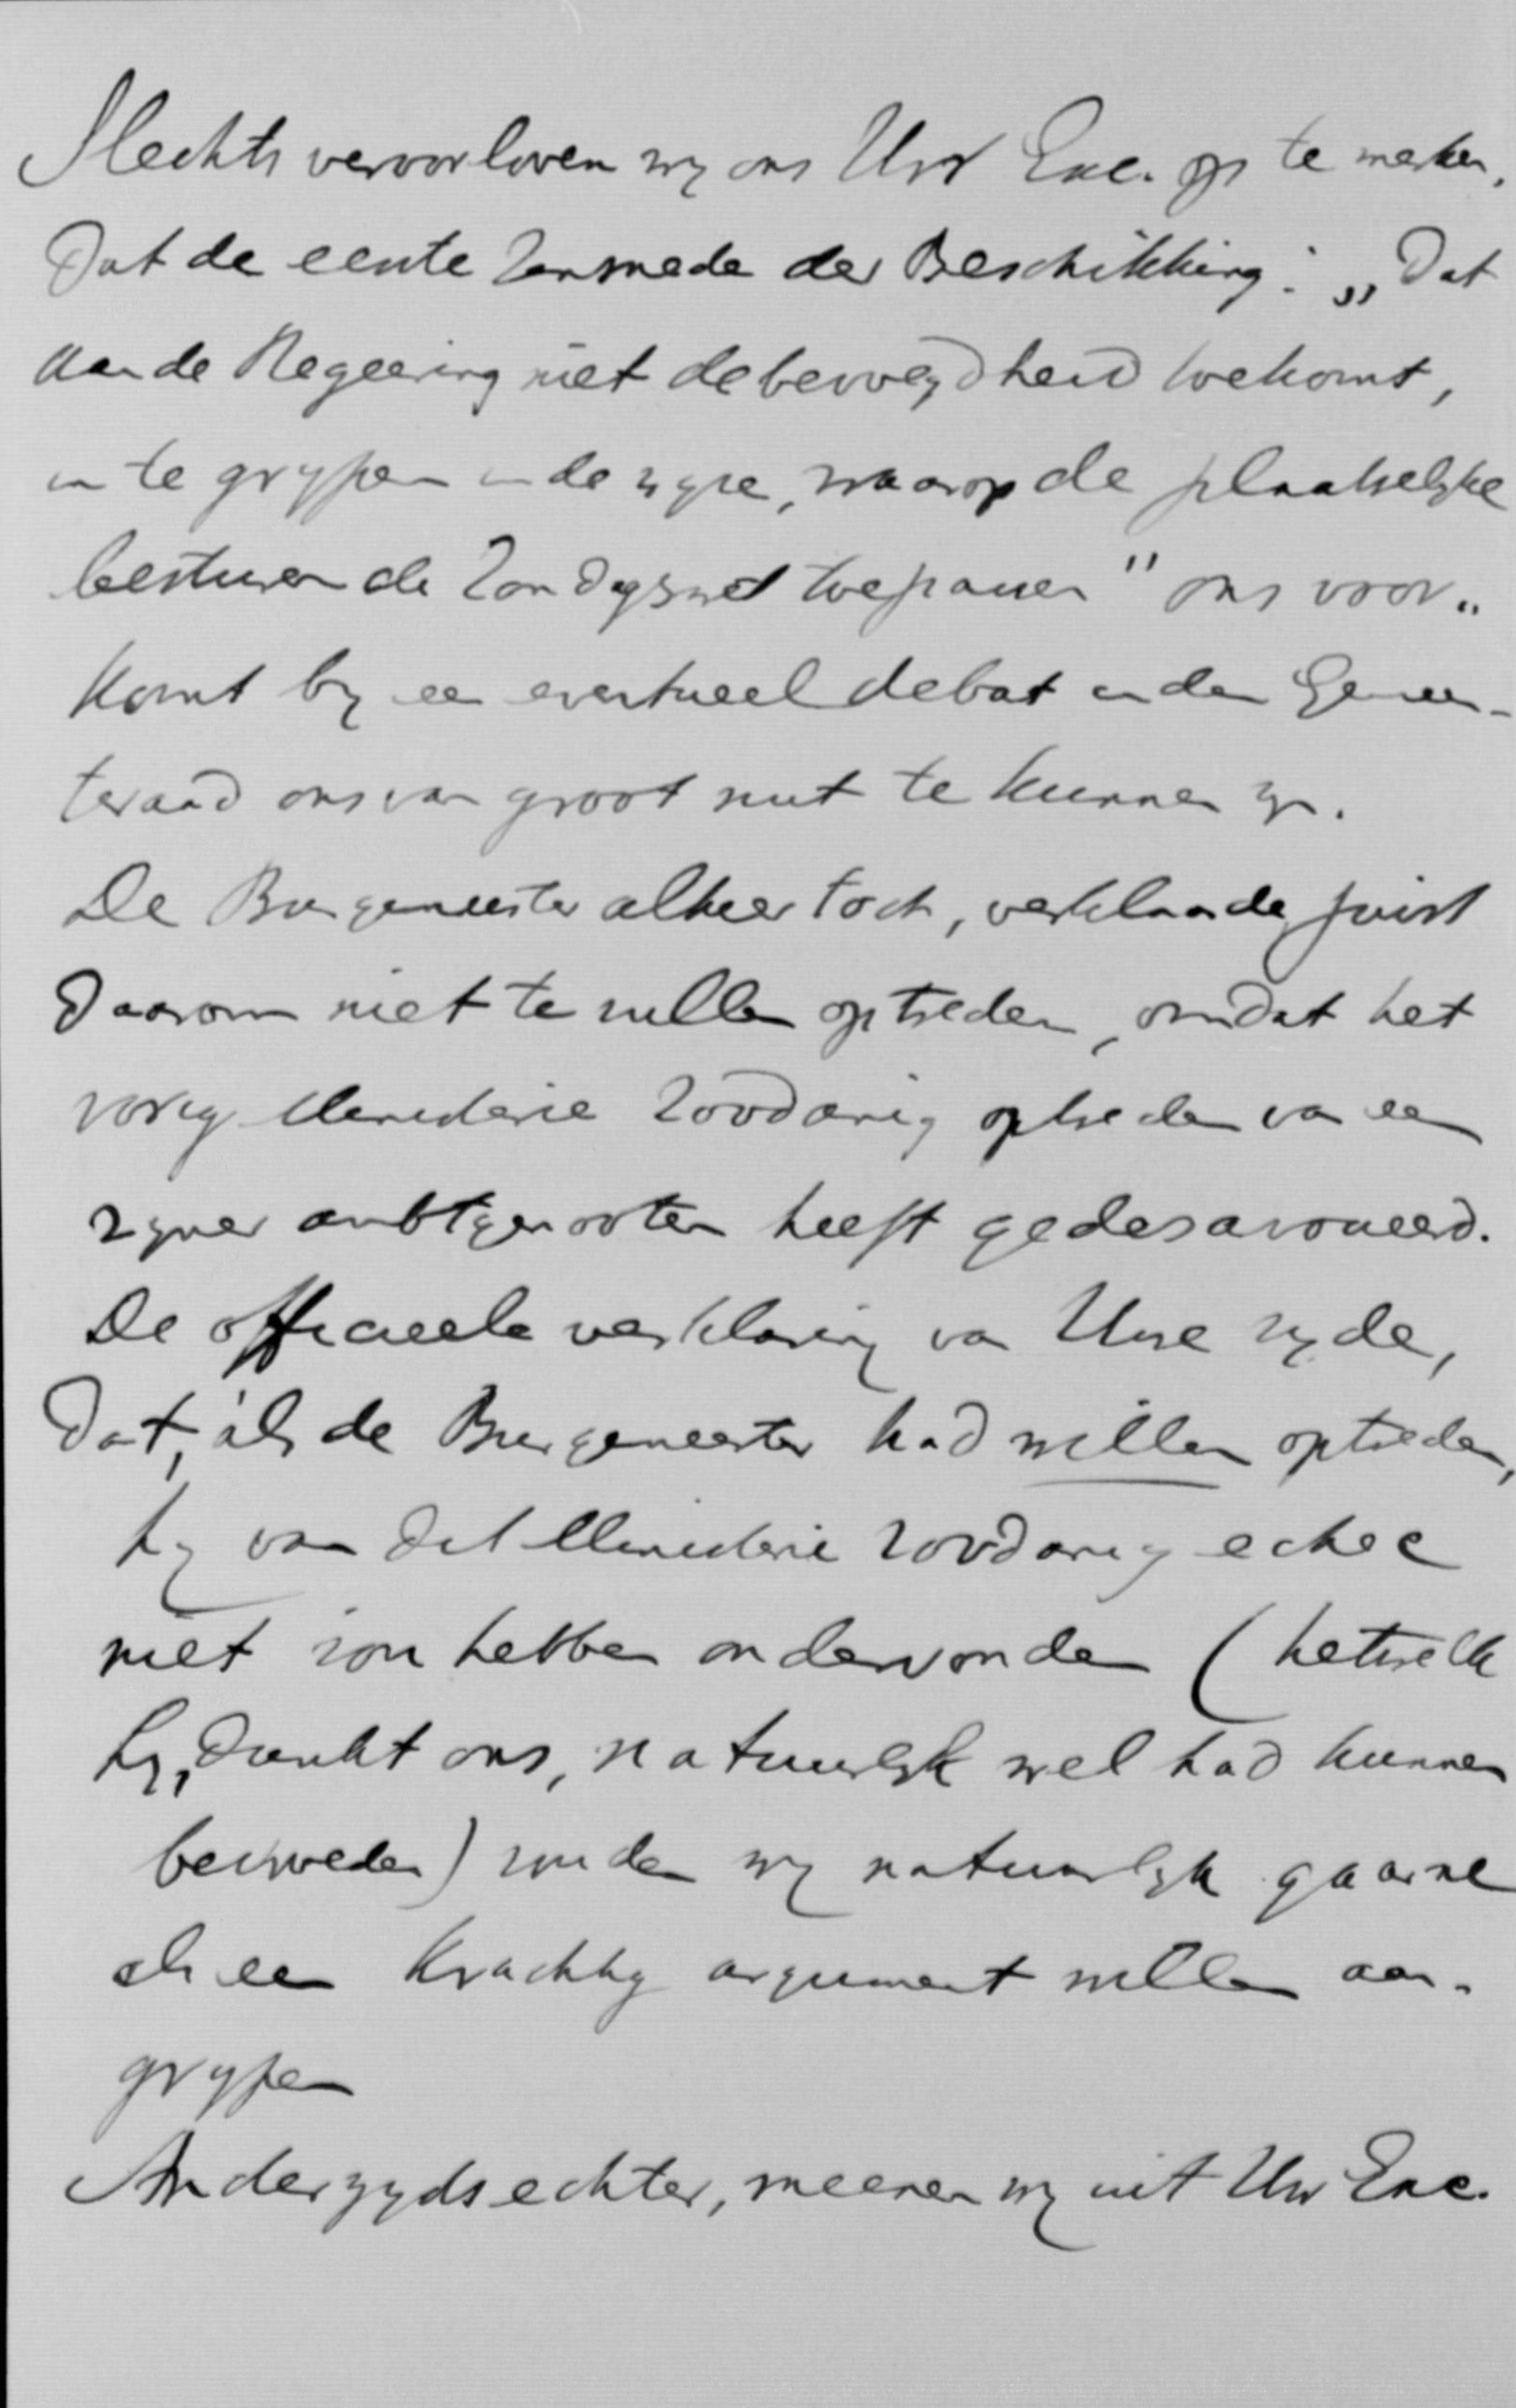 Slechts veroorloven wy ons Uw Exc. op te merken,
dat de eerste zinsnede der Beschikking: „dat
aan de Regeering niet de bevoegdheid toekomt,
in te grypen in de wyze, waarop de plaatselyke
besturen de Zondagswet toepassen" ons voor„
komt by een eventueel debat in den Gemeen-
teraad ons van groot nut te kunnen zyn.
De Burgemeester alhier toch, verklaarde juist
daarom niet te willen optreden, omdat het
vorig Ministerie zoodanig optreden van een
zyner ambtgenooten heeft gedesavoueerd.
De officieele verklaring van Uwe zyde,
dat, als de Burgemeester had willen optreden,
hy van dit Ministerie zoodanig echec
niet zou hebben ondervonden (hetwelk
hy, dunkt ons, natuurlyk wel had kunnen
bevroeden) zouden wy natuurlyk gaarne
als een krachtig argument willen aan-
grypen
Anderzyds echter, meenen wy uit Uw Exc.